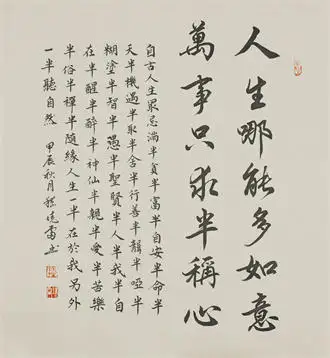 人生哪能多如意
萬事只求半稱心
自古人生最忌滿半貧半富半自安半命半
天半機遇半取半舍半行善半聾半啞半
糊塗半智半愚半聖賢半人半我半自
在半醒半醉半神仙半親半愛半苦樂
半俗半禪半隨緣人生一半在於我另外
一半聽自然 甲辰秋月